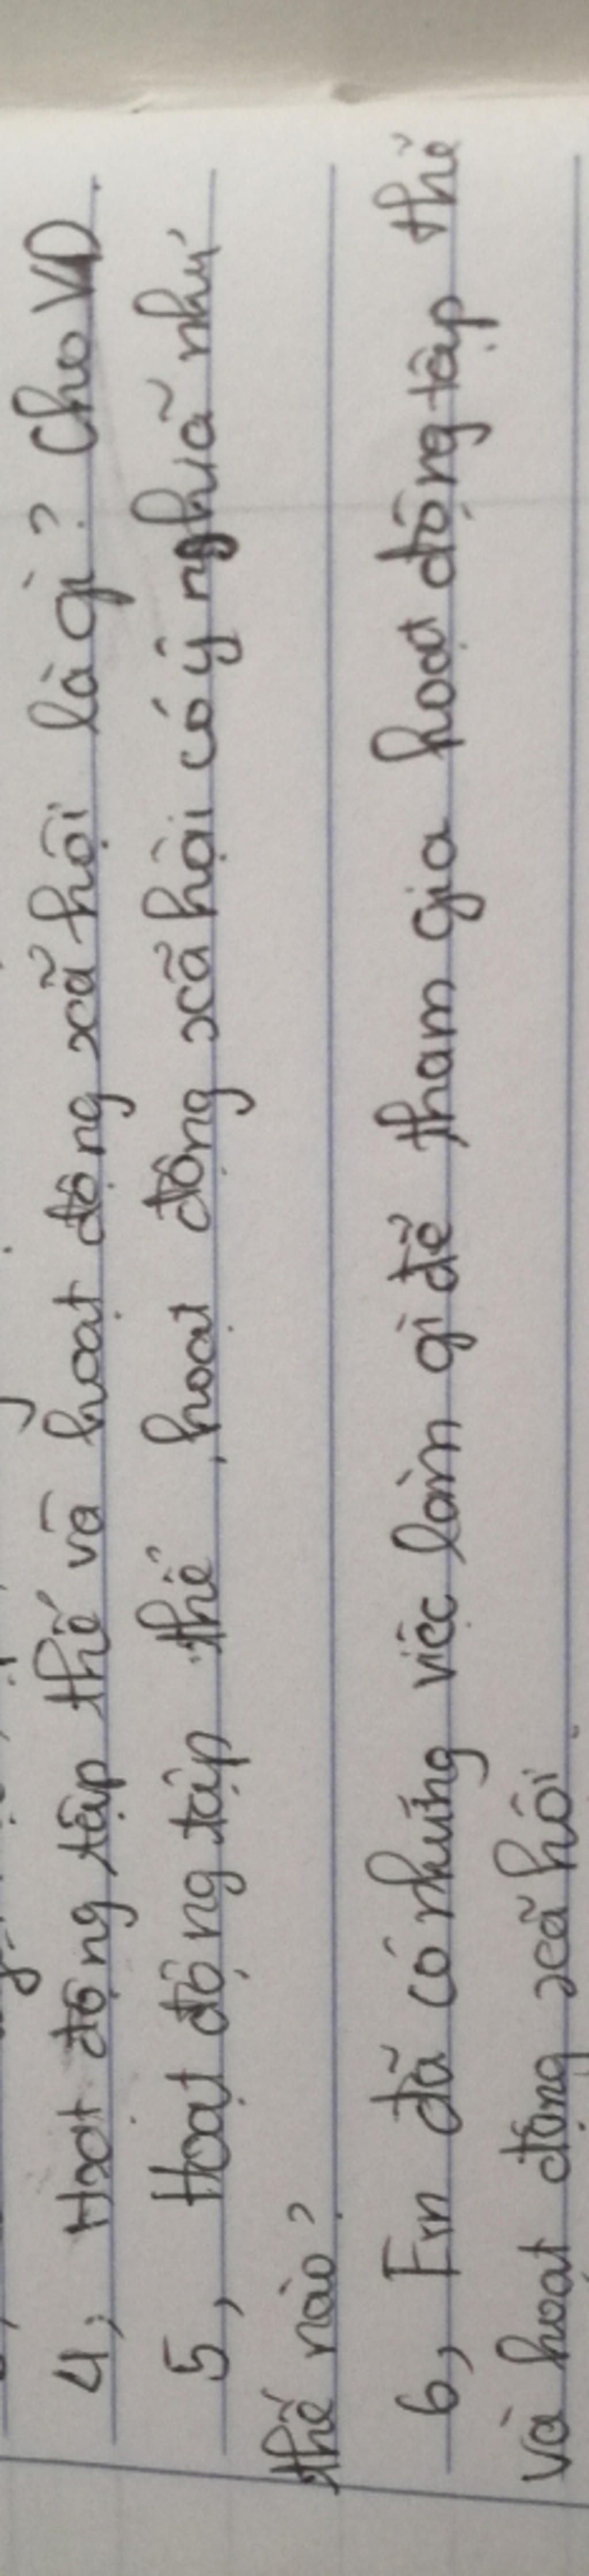 4, Hoạt động tập thể và hoạt động xã hội là gì? Cho VD.
5, Hoạt động tập thể, hoạt động xã hội có ý nghĩã như
thế nào?
6, Em đã có những việc làm gì để tham gia hoạt động tập thể
và hoạt động xã hội.